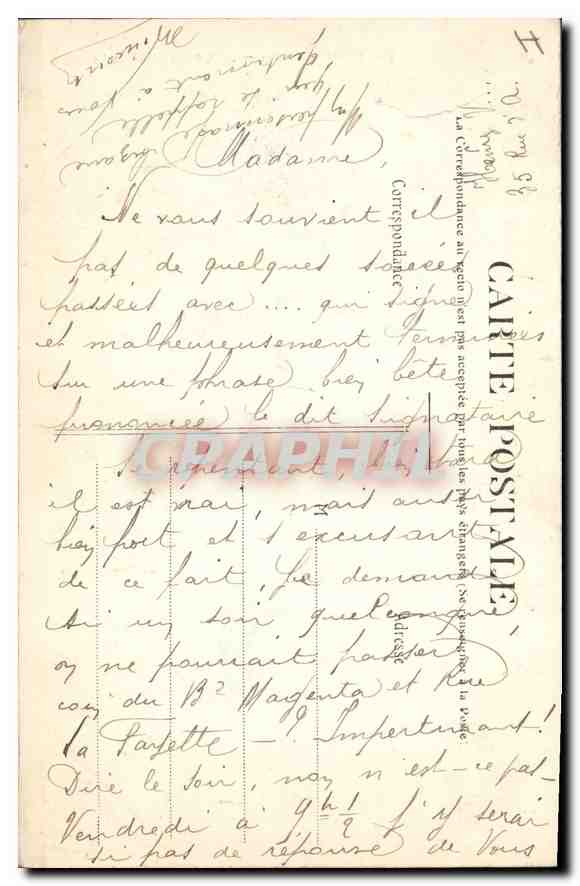 Madame,
Ne vous souvient il
pas de quelques soirées
passées avec .... qui signe
et malheureusement terminées
sur une phrase bien bête
prononcée le dit signataire
Se repentant, bien tard
il est vrai, mais aussi
bien fort et s'excusant
de ce fait, Le demande
si un soir quelconque,
on ne pourrait passer
coin du Bd Magenta et Rue
la Fayette — ? Impertinent!
Dire le soir, non n'est-ce pas—
Vendredi à 9h 1/2 J'y serai
si pas de réponse de Vous
Un personnage bizarre
qui se rappelle
gentiment à vous
25 Rue
I
CARTE POSTALE
La Correspondance au recto n'est pas acceptée par tous les pays étrangers (Se renseigner à la Poste)
Correspondance
Adresse
M
CRAPHIL